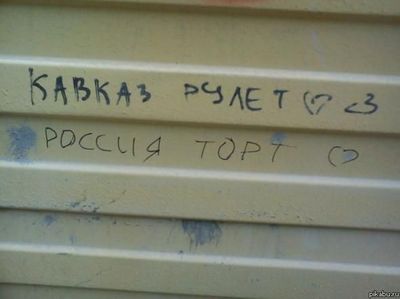 КАВКАЗ РУЛЕТ ♡ <3
РОССИЯ ТОРТ ♡
pikabu.ru